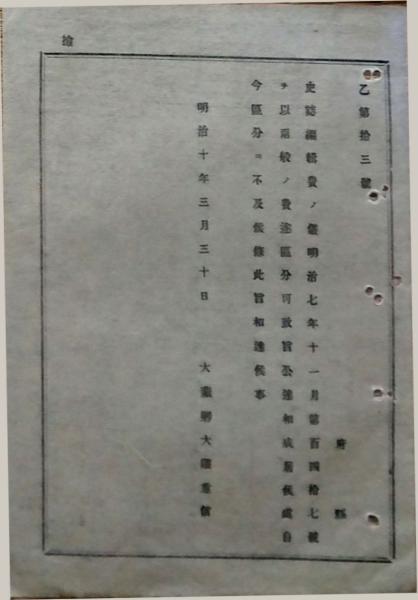 乙第拾三號
府縣
史誌編輯費ノ儀明治七年十一月第百四拾七號
ヲ以兩般ノ費途區分可致旨公達相成居候處自
今區分ニ不及候條此旨相達候事
明治十年三月三十日
大藏卿大隈重信